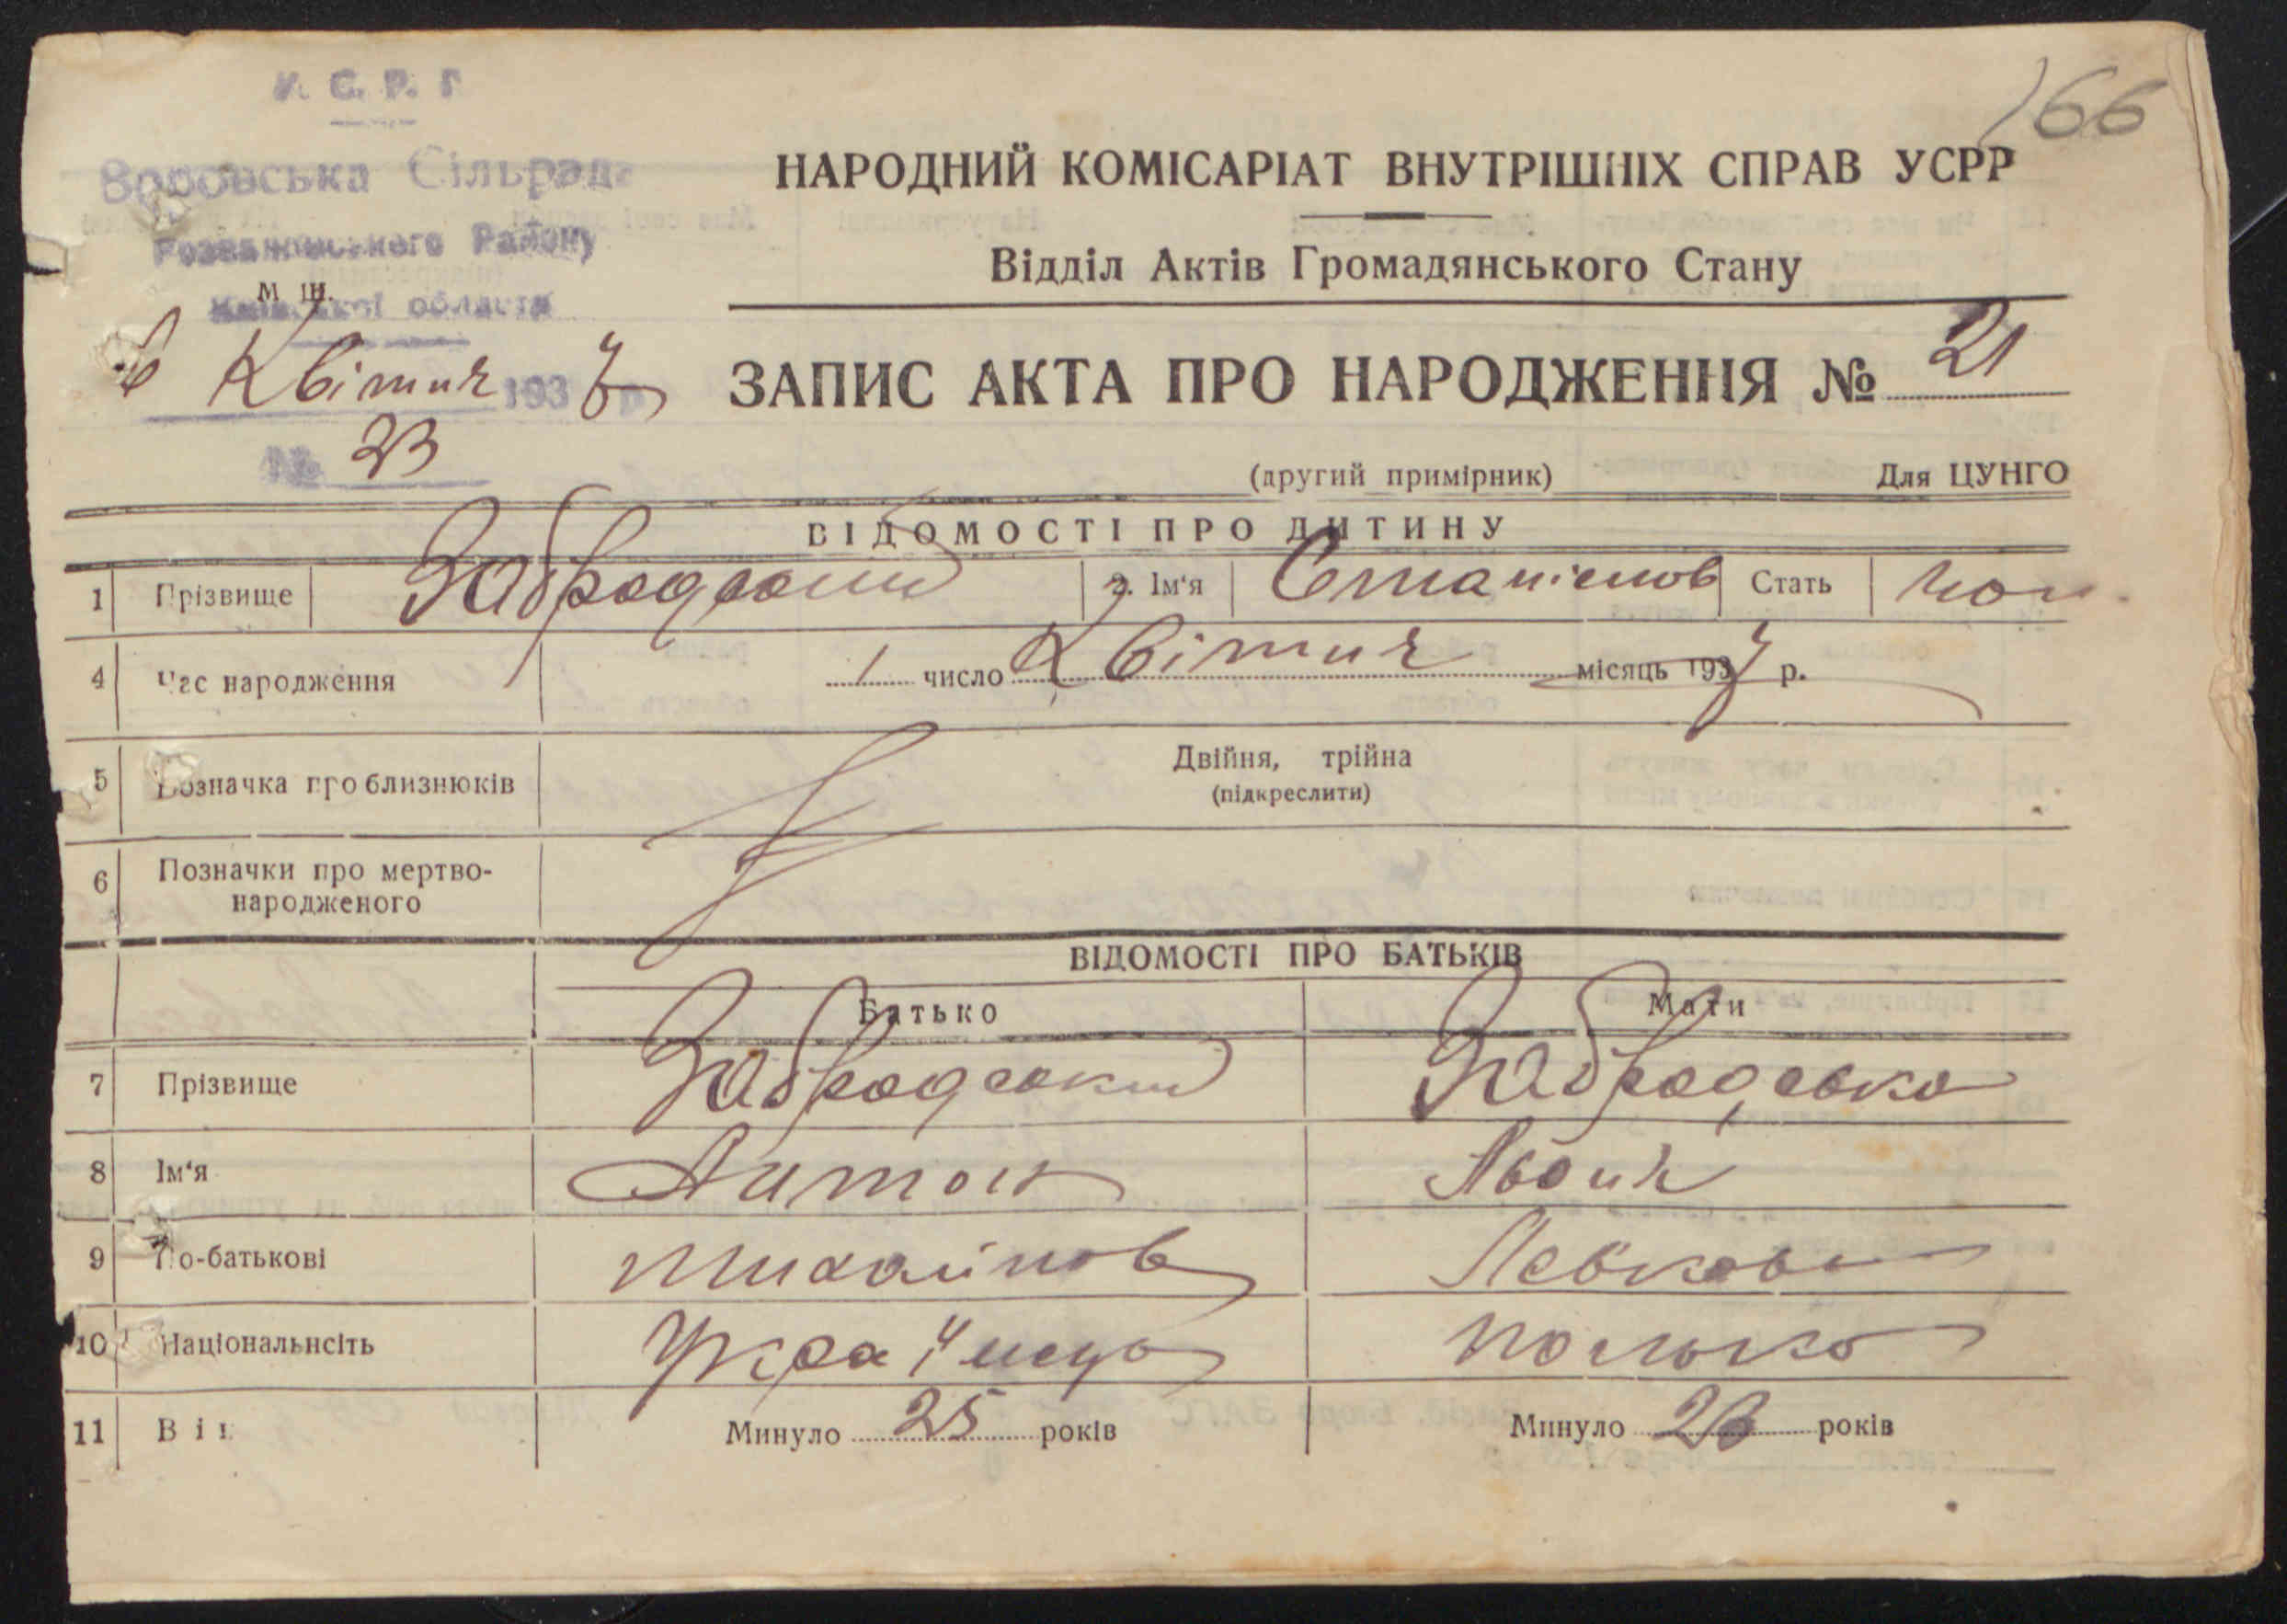 166
У. С. Р. Р
Воровська Сільрада
Розважівського Району
Київської області
М Ш.
6 Квітня 1937 р
№ 23
НАРОДНИЙ КОМІСАРІАТ ВНУТРІШНІХ СПРАВ УСРР
Відділ Актів Громадянського Стану
ЗАПИС АКТА ПРО НАРОДЖЕННЯ № 21
(другий примірник) Для ЦУНГО
ВІДОМОСТІ ПРО ДИТИНУ
1 Прізвище Забродский 2. Ім'я Станіслов Стать чол.
4 Час народження 1 число Квітня місяць 1937 р.
5 Позначка про близнюків Двійня, трійна
(підкреслити)
6 Позначки про мертво-
народженого
ВІДОМОСТІ ПРО БАТЬКІВ
Батько Мати
7 Прізвище Забродский Забродська
8 Ім'я Антон
9 По-батькові Михайлов Левков
10 Національнсіть Українець Полька
11 Вік Минуло 25 років Минуло років